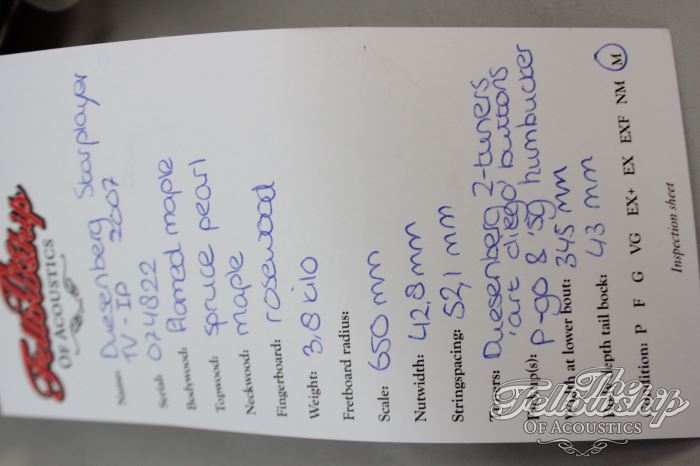 Fellowship
OF ACOUSTICS
Name: Duesenberg Starplayer
TV-IP 2007
Serial: 074822
Bodywood: flamed maple
Topwood: spruce pearl
Neckwood: maple
Fingerboard: rosewood
Weight: 3,8 kilo
Fretboard radius:
Scale: 650 mm
Nutwidth: 42,8 mm
Stringspacing: 52,1 mm
Tuners: Duesenberg Z-tuners
'art diego' buttons
p-90 & 'sg' humbucker
Width at lower bout: 345 mm
depth tail bock: 43 mm
Condition: P F G VG EX+ EX EXF NM M
Inspection sheet
The
Fellowship
OF ACOUSTICS